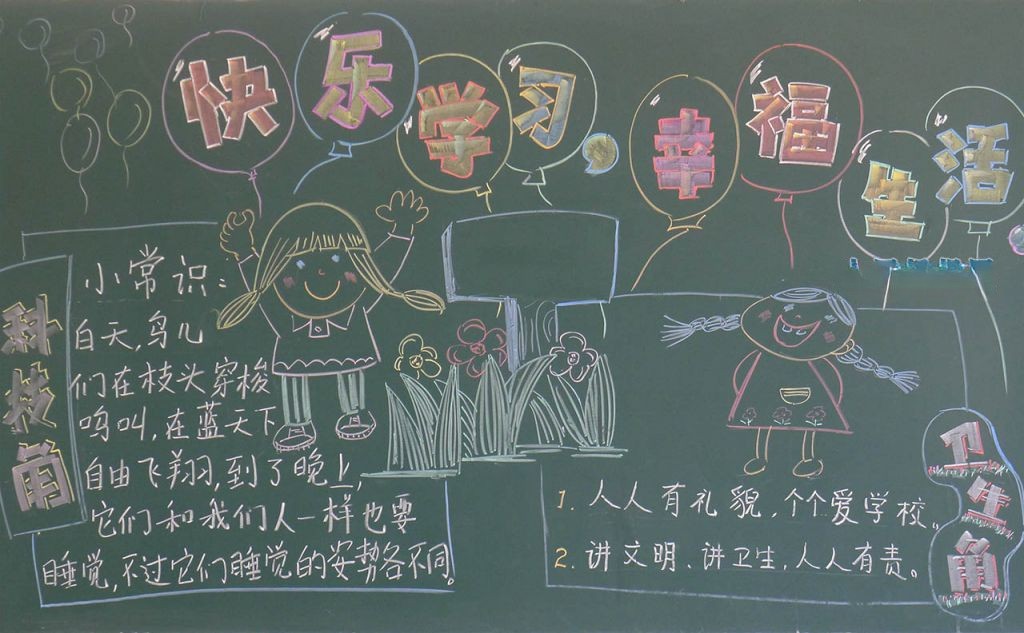 快乐学习 幸福生活
科技角
小常识：
白天，鸟儿
们在枝头穿梭
鸣叫，在蓝天下
自由飞翔，到了晚上，
它们和我们人一样也要
睡觉，不过它们睡觉的姿势各不同。
1. 人人有礼貌，个个爱学校。
2. 讲文明、讲卫生，人人有责。
卫生角